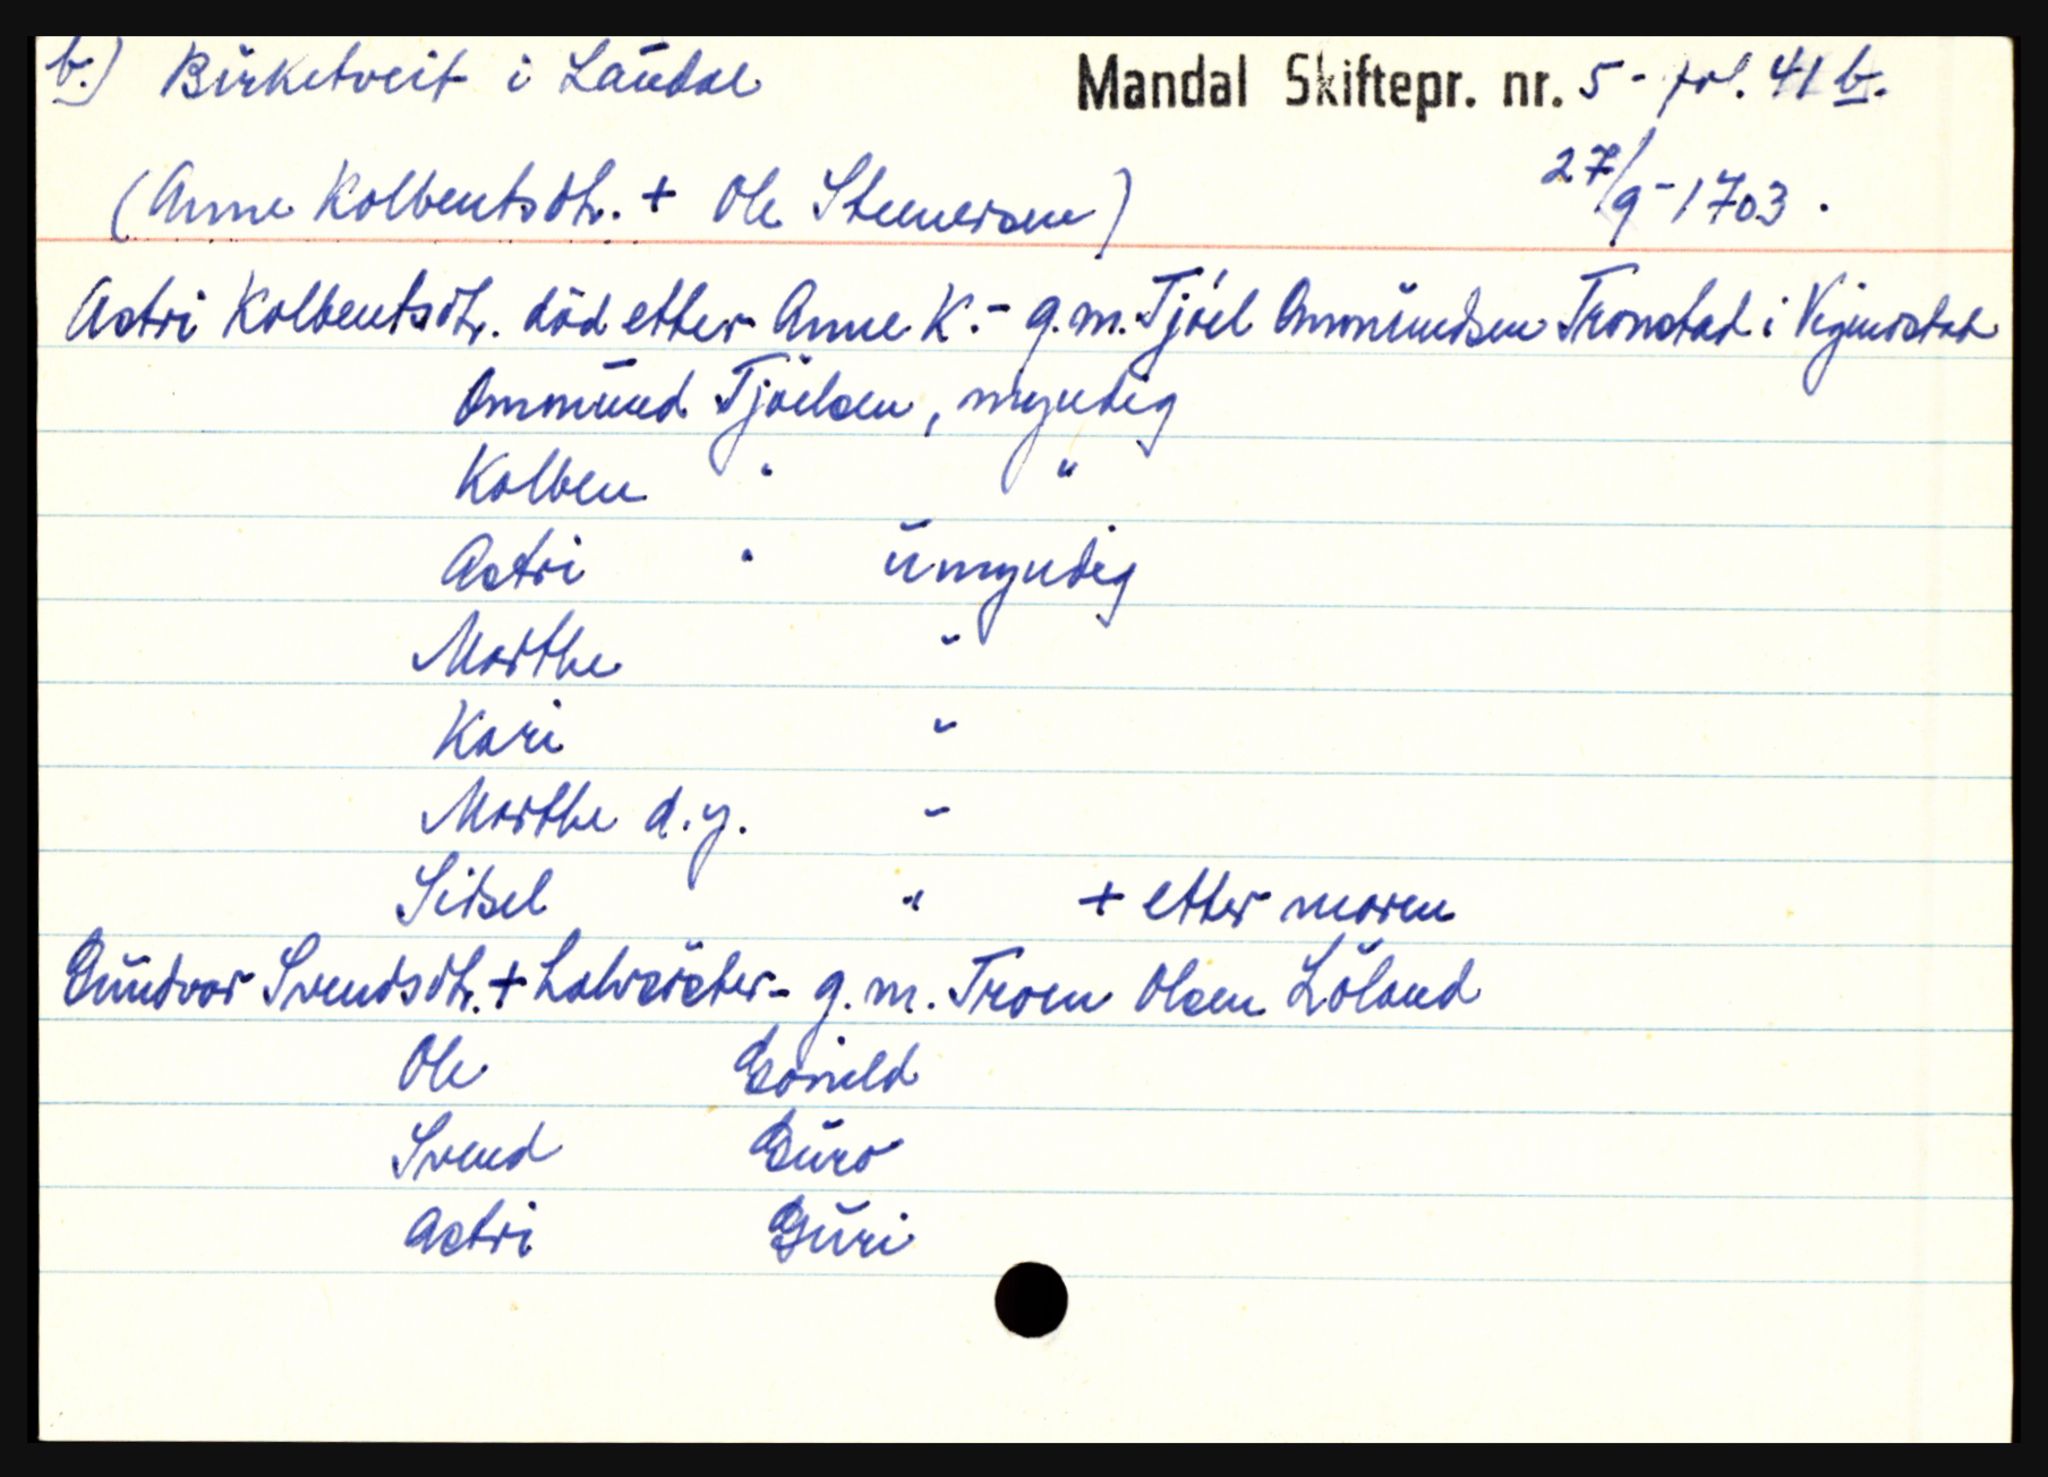 b.) Birketveit i Laudal Mandal Skiftepr. nr. 5 - fol. 41 b.
27/9 - 1703.
(Anne Kolbentsdtr. + Ole Steenersen)
Astri Kolbentsdtr. död etter Anne K. - g.m. Tjöel Ommundsen Tronstad i Vigmostad
Ommund Tjöelsen, myndig
Kolben " "
Astri " umyndig
Marthe "
Kari "
Marthe d.y. "
Sidsel " + etter moren
Gundvor Svendsdtr. + halvsöster - g.m. Troen Olsen Löland
Ole Gonild
Svend Guro
Astri Guri